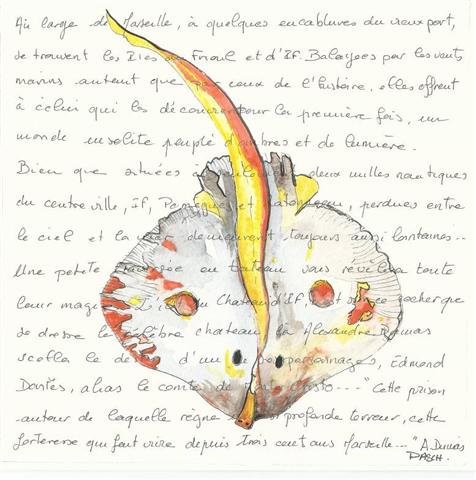 Au large de Marseille, à quelques encablures du vieux port,
se trouvent les Iles du Frioul et d'IF. Balayées par les vents
marins autant que par ceux de l'histoire, elles offrent
à celui qui les découvre pour la première fois, un
monde insolite peuplé d'ombres et de lumière.
Bien que situées à seulement deux milles nautiques
du centre ville, IF, Pomègues et Ratonneau, perdues entre
le ciel et la mer demeurent toujours aussi lointaines...
Une petite traversée en bateau vous révélera toute
leur magie. L'île du Château d'IF, est ce rocher que
se dresse le célèbre château là Alexandre Dumas
scella le destin d'un de ses personnages, Edmond
Dantès, alias le comte de Monte Cristo..." Cette prison
autour de laquelle règne une si profonde terreur, cette
forteresse qui fait vivre depuis trois cent ans Marseille..." A. Dumas
DASCH.